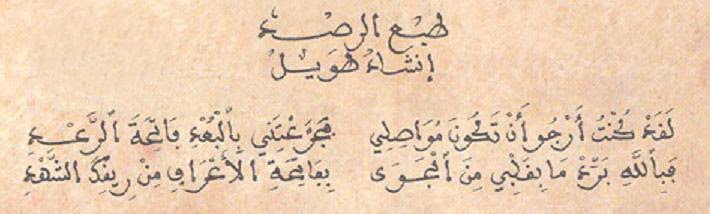 طبْع الرصْد
إنشادْ طَوِيلْ
لَقَدْ كُنْتُ أَرْجُو أَنْ تَكُونَ مُوَاصِلِي فَجَرَّعْتَنِي بِالْبُعْدِ فَاتِحَةَ الرَّعْدِ
فَبِاللَّهِ بَرِّدْ مَا بِقَلْبِي مِنَ الْجَوَى بِفَاتِحَةِ الْأَعْرَافِ مِنْ رِيقِكَ الشَّهْدِ